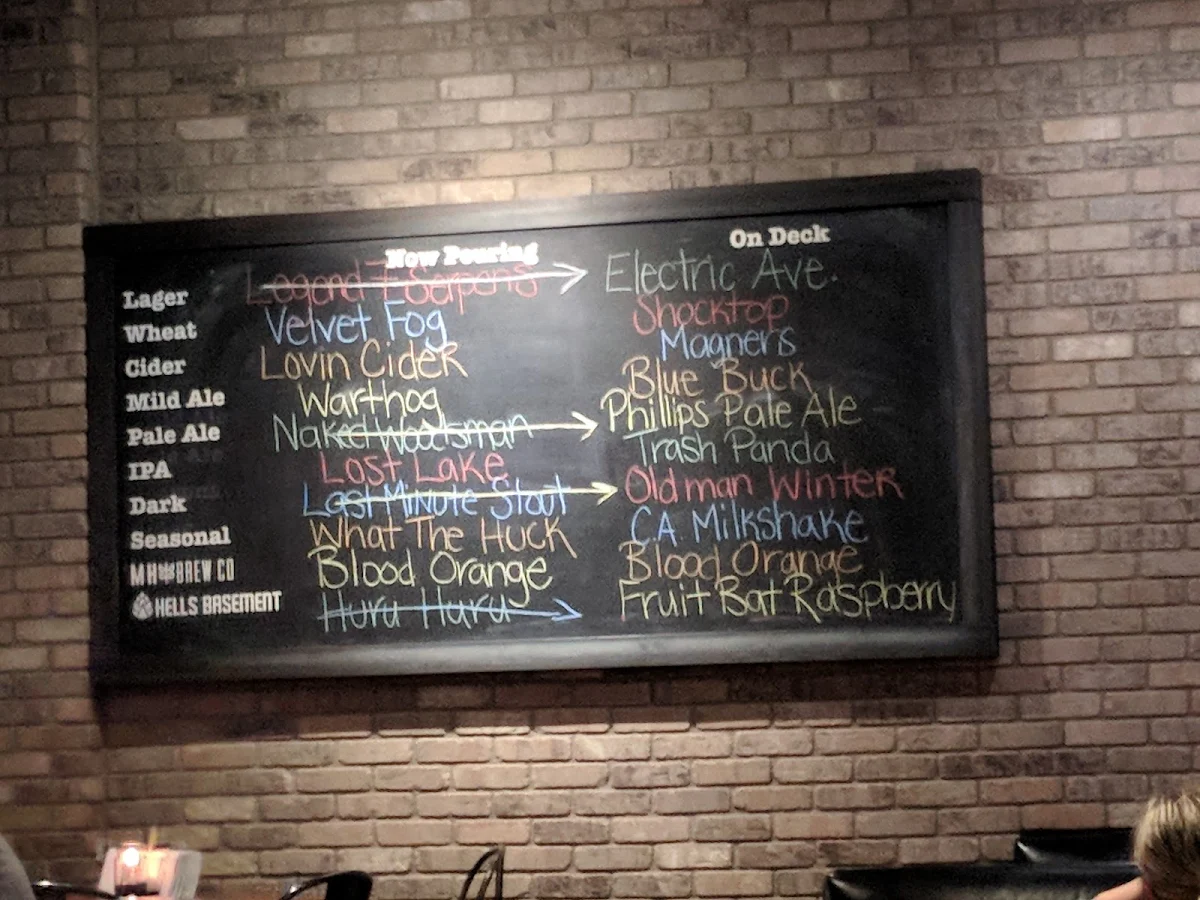 Now Pouring On Deck
Lager Legend 7 Serpents Electric Ave.
Wheat Velvet Fog Shocktop
Cider Lovin Cider Magners
Mild Ale Warthog Blue Buck
Pale Ale Naked Woodsman Phillips Pale Ale
IPA Lost Lake Trash Panda
Dark Last Minute Stout Old man Winter
Seasonal What The Huck C.A. Milkshake
MH BREW CO Blood Orange Blood Orange
HELLS BASEMENT Huru Huru Fruit Bat Raspberry